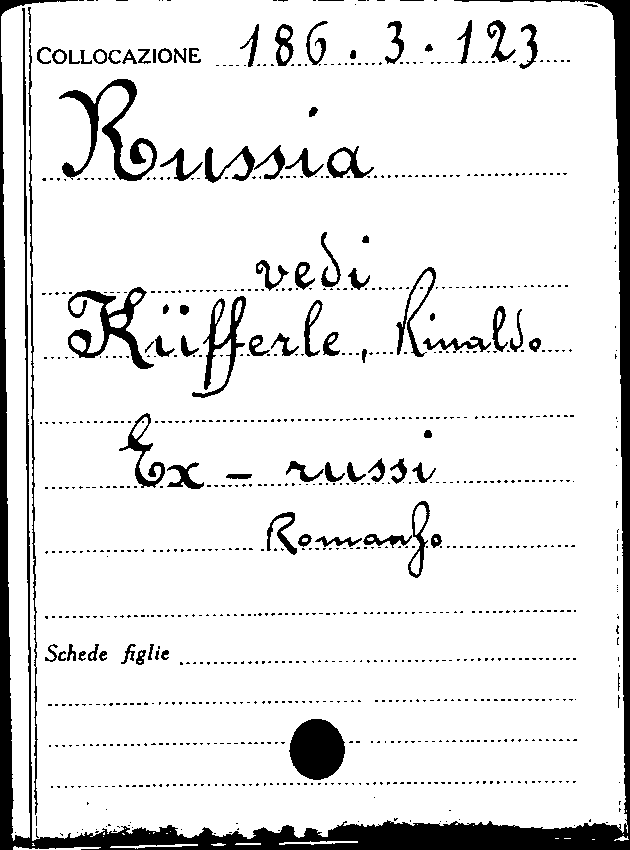 COLLOCAZIONE 186.3.123
Russia
vedi
Küfferle, Rinaldo
Ex - russi
Romanzo
Schede figlie